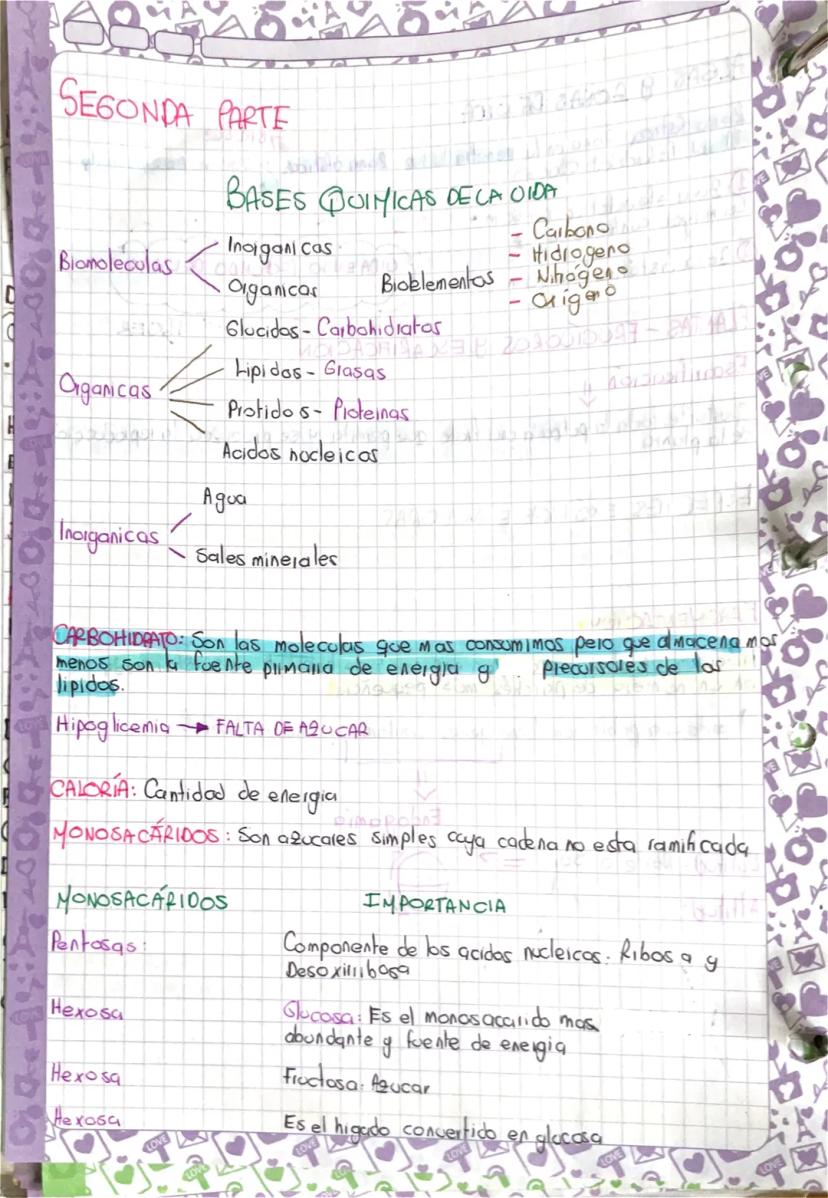 SEGONDA PARTE
BASES QUIMICAS DE LA VIDA
Biomoleculas
Inorganicas
Organicas
Bioblementos
- Carbono
- Hidrogeno
- Nitrógeno
- Oxígeno
Organicas
Glucidos - Carbohidratos
Lipidos - Grasas
Protidos - Proteinas
Acidos nucleicos
Inorganicas
Agua
Sales minerales
CARBOHIDRATO: Son las moleculas que mas consumimos pero que almacenamos
menos son la fuente primaria de energia y precursores de los
lipidos.
Hipoglicemia → FALTA DE AZUCAR
CALORÍA: Cantidad de energia
MONOSACÁRIDOS: Son azucares simples cuya cadena no esta ramificada
MONOSACÁRIDOS IMPORTANCIA
Pentosas: Componente de los acidos nucleicos. Ribosa y
Desoxirribosa
Hexosa Glucosa: Es el monosacarido mas
abundante y fuente de energia
Hexosa Fructosa: Azucar
Hexosa Es el higado convertido en glucosa
LOVE